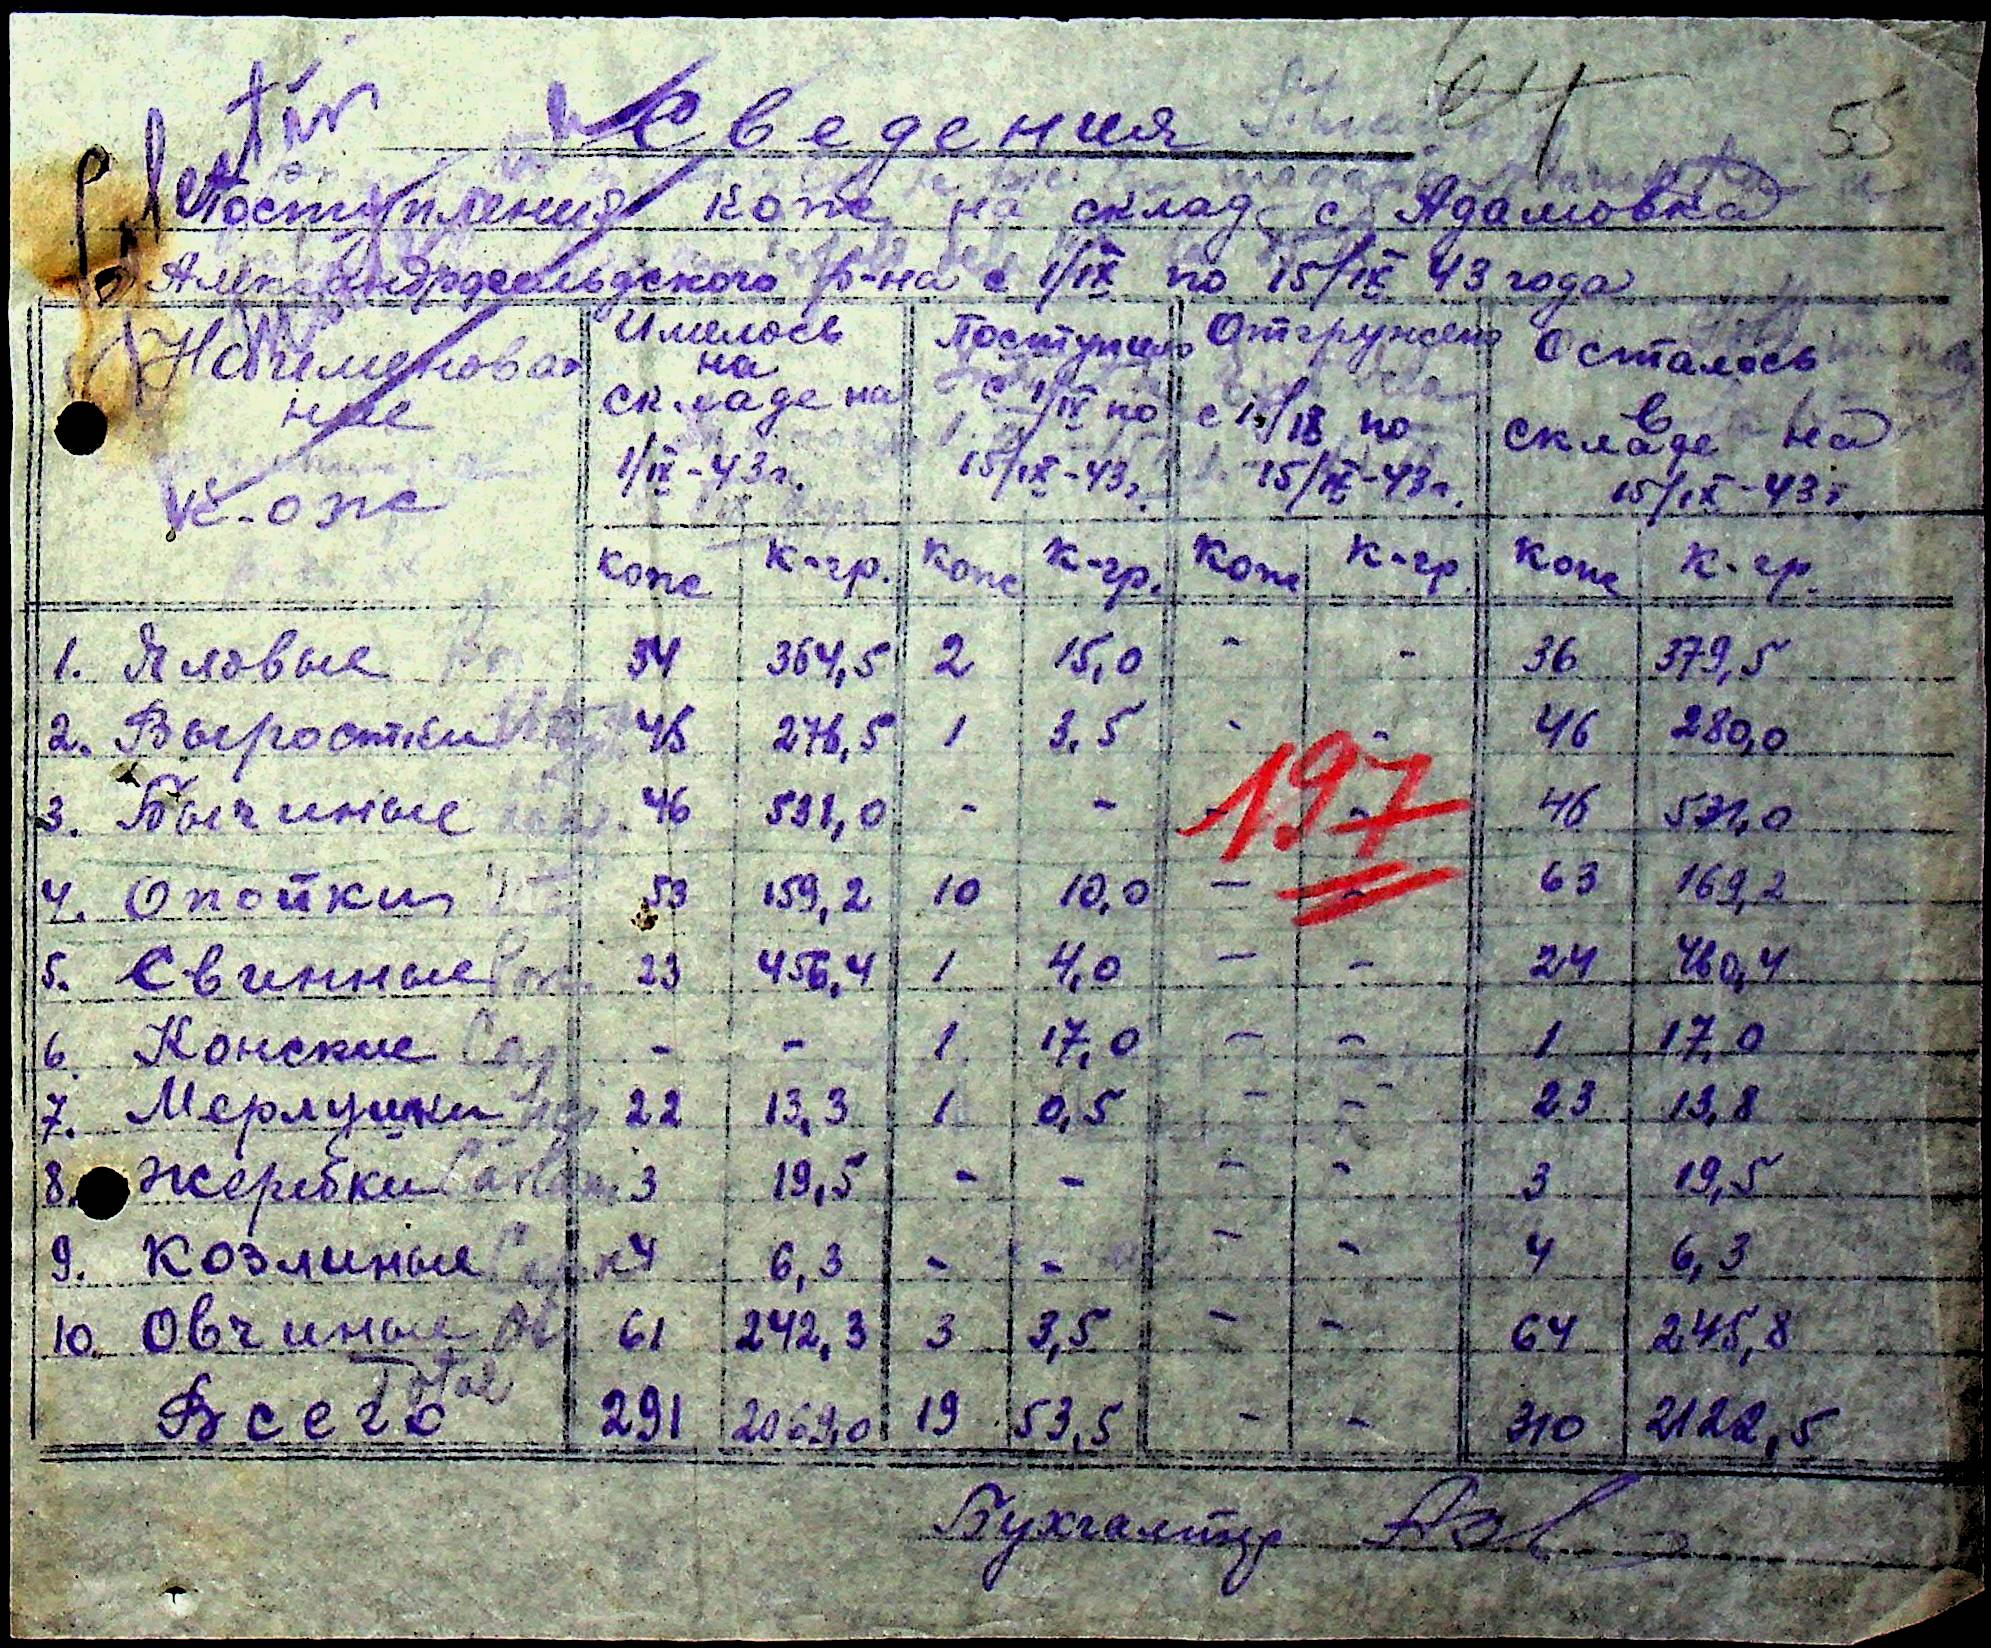 Сведения
55
Поступления кож на склад с Адамовка
Александрфельдского р-на с 1/IX по 15/IX 43 года
Наименова- Имелось Поступило Отгружено Осталось
ние на с 1/IX по с 1/IX по в
кож складе на 15/IX-43г. 15/IX-43г. складе на
1/IX-43г. 15/IX-43г.
кож к-гр. кож к-гр. кож к-гр. кож к-гр.
1. Яловые 34 364,5 2 15,0 - - 36 379,5
2. Выростки 45 276,5 1 3,5 - - 46 280,0
197
3. Бычиные 46 531,0 - - - - 46 531,0
4. Опойки 53 159,2 10 10,0 - - 63 169,2
5. Свинные 23 456,4 1 4,0 - - 24 460,4
6. Конские - - 1 17,0 - - 1 17,0
7. Мерлушки 22 13,3 1 0,5 - - 23 13,8
8. Жеребки 3 19,5 - - - - 3 19,5
9. Козлиные 4 6,3 - - - - 4 6,3
10. Овчиные 61 242,3 3 3,5 - - 64 245,8
Total
Всего 291 2069,0 19 53,5 - - 310 2122,5
Бухгалтер